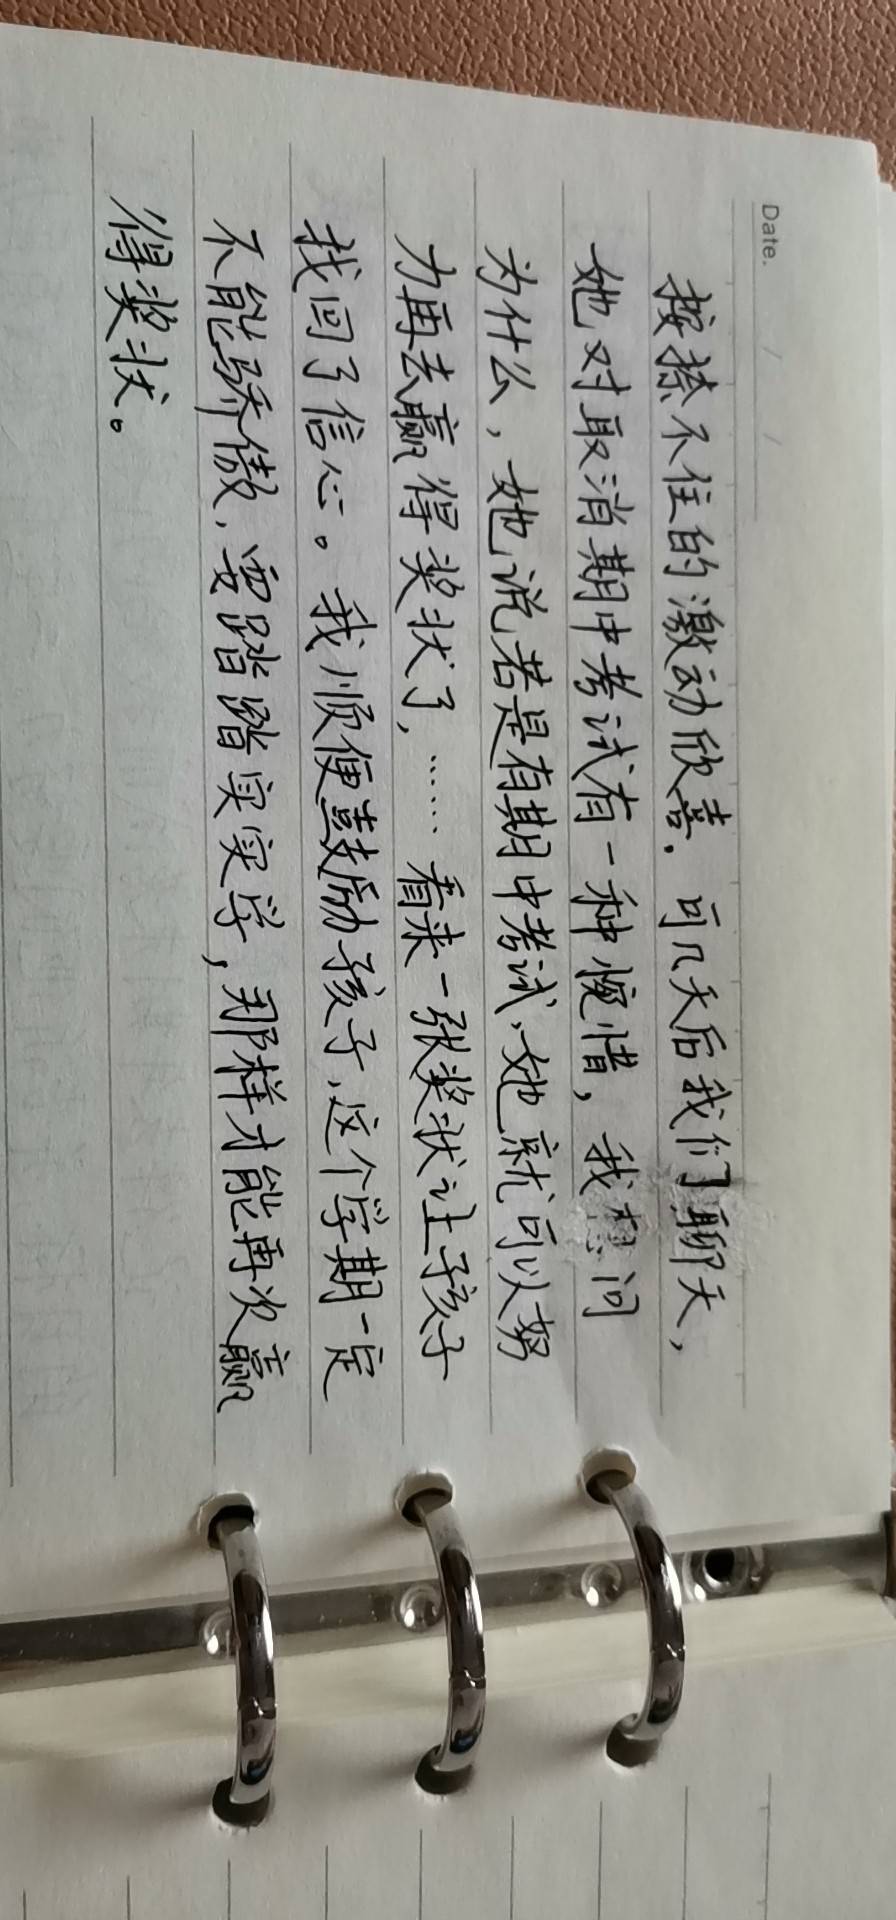 Date. / /
按捺不住的激动欣喜. 可几天后我们聊天,
她对取消期中考试有一种惋惜, 我想问
为什么, 她说若是有期中考试, 她就可以努
力再去赢得奖状了, …… 看来一张奖状让孩子
找回了信心。我顺便鼓励孩子, 这个学期一定
不能骄傲, 要踏踏实实学, 那样才能再次赢
得奖状。